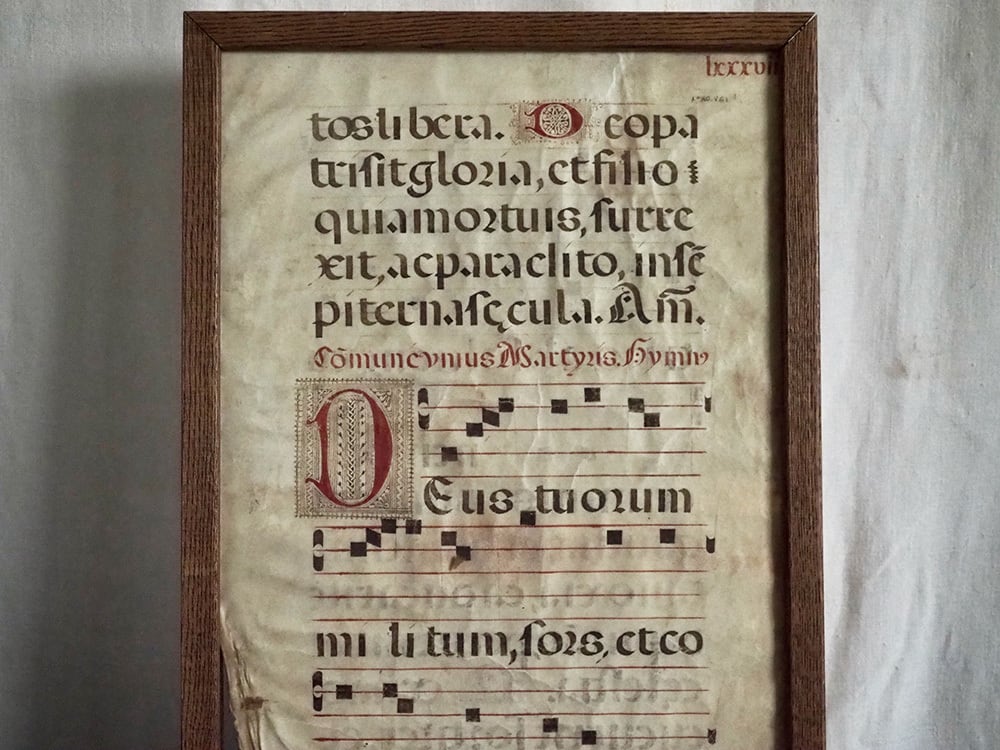 lxxxvii
tos libera. Deo pa
tri sit gloria, et filio
qui a mortuis, surre
xit, ac paraclito, in sē
piterna sęcula. Am̄.
Cōmune vnius Martyris. Hymnꝰ
DEus tuorum
mi li tum, sors, et co